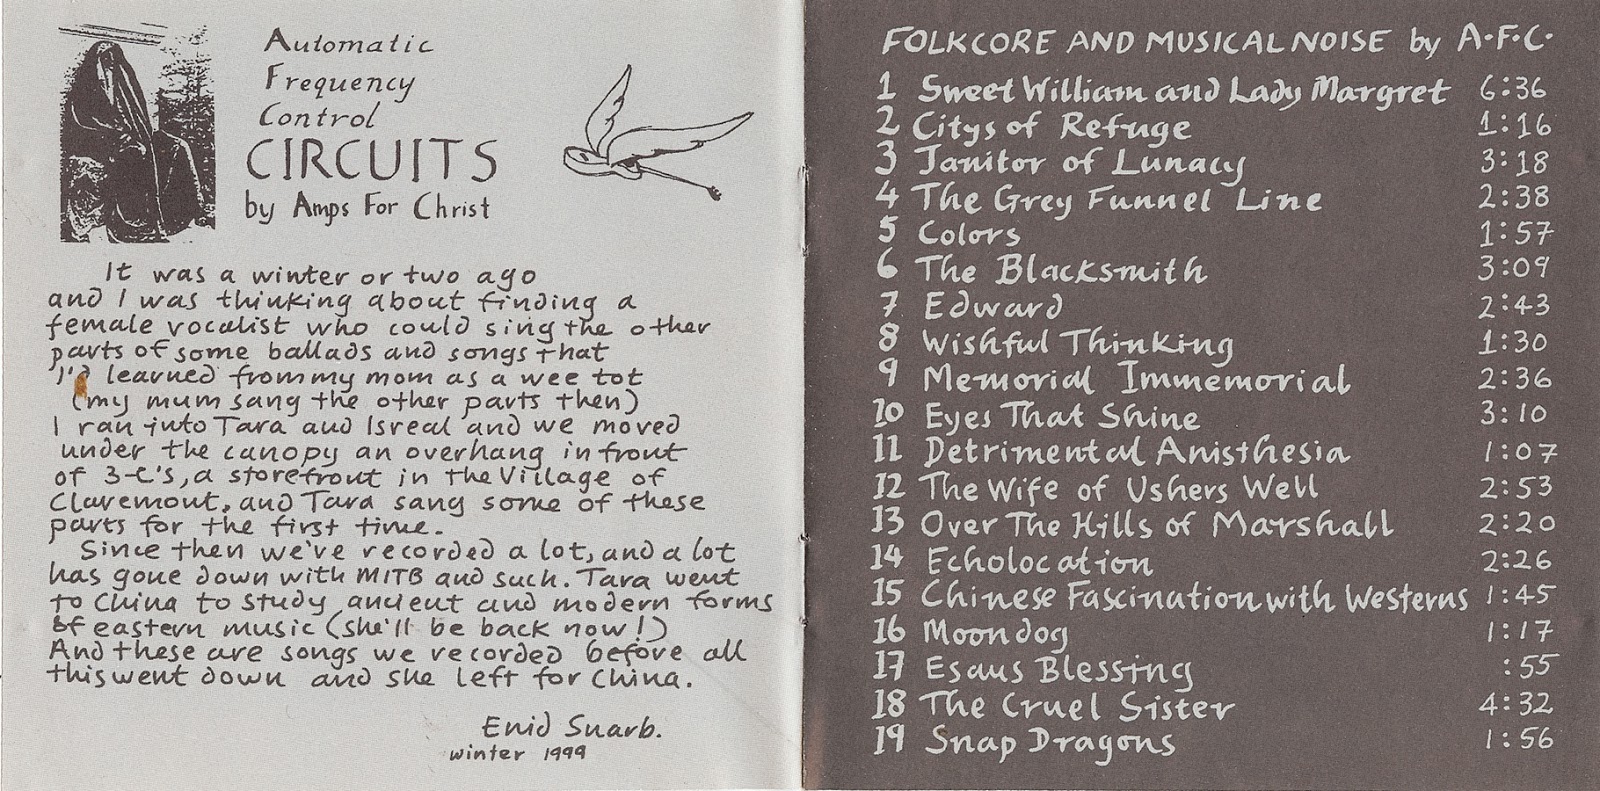 Automatic
Frequency
Control
CIRCUITS
by Amps For Christ
It was a winter or two ago
and I was thinking about finding a
female vocalist who could sing the other
parts of some ballads and songs that
I'd learned from my mom as a wee tot
(my mum sang the other parts then)
I ran into Tara and Isreal and we moved
under the canopy an overhang in front
of 3-C's, a storefront in the Village of
Claremont, and Tara sang some of these
parts for the first time.
Since then we've recorded a lot, and a lot
has gone down with MITB and such. Tara went
to China to study ancient and modern forms
of eastern music (she'll be back now!)
And these are songs we recorded before all
this went down and she left for China.
Enid Snarb.
winter 1999
FOLKCORE AND MUSICAL NOISE by A.F.C.
1 Sweet William and Lady Margret 6:36
2 Citys of Refuge 1:16
3 Janitor of Lunacy 3:18
4 The Grey Funnel Line 2:38
5 Colors 1:57
6 The Blacksmith 3:09
7 Edward 2:43
8 Wishful Thinking 1:30
9 Memorial Immemorial 2:36
10 Eyes That Shine 3:10
11 Detrimental Anisthesia 1:07
12 The Wife of Ushers Well 2:53
13 Over The Hills of Marshall 2:20
14 Echolocation 2:26
15 Chinese Fascination with Westerns 1:45
16 Moondog 1:17
17 Esaus Blessing :55
18 The Cruel Sister 4:32
19 Snap Dragons 1:56